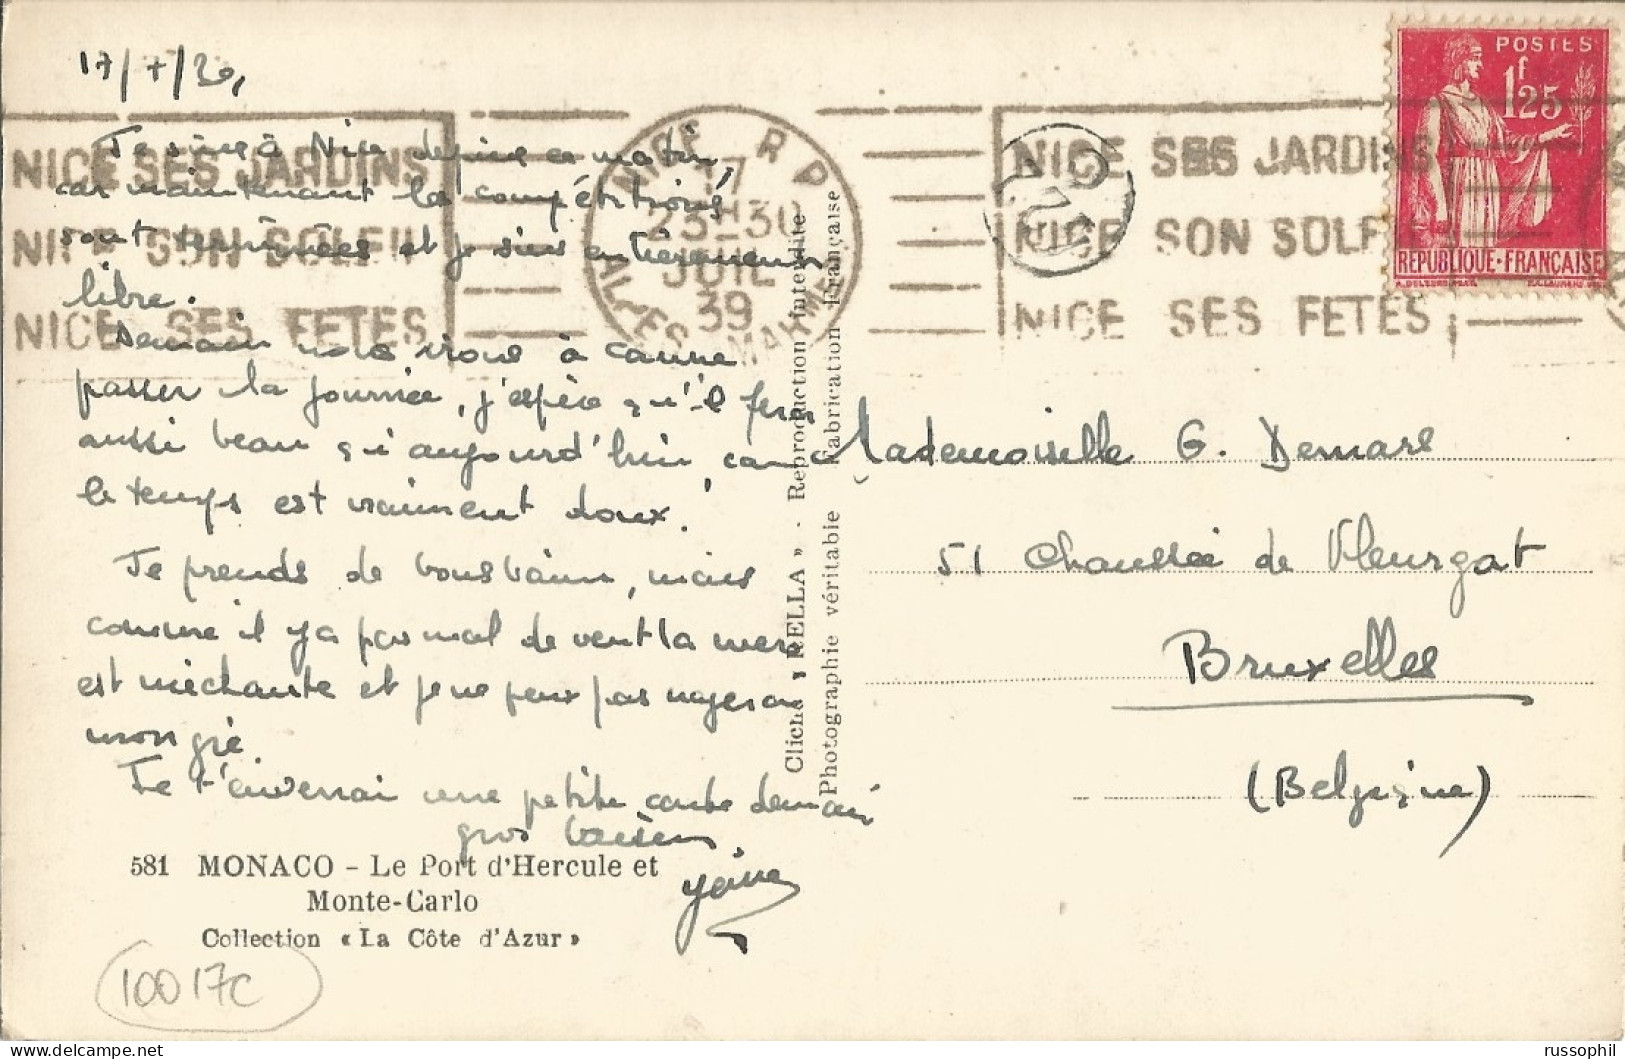 17/7/39,
Je suis à Nice depuis ce matin,
car maintenant les compétitions
sont terminées et je suis entièrement
libre.
Demain nous irons à Canne
passer la journée, j'espère qu'il fera
aussi beau qu'aujourd'hui, car
le temps est vraiment doux.
Je prends de bons bains, mais
comme il y a pas mal de vent la mer
est méchante et je ne peux pas nager à
mon gré.
Je t'enverrai une petite carte demain
gros baisers
581 MONACO - Le Port d'Hercule et
Monte-Carlo
Collection « La Côte d'Azur »
10017C
NICE SES JARDINS
NICE SON SOLEIL
NICE SES FETES
NICE R P
17
23H30
JUIL
39
ALPES MARMES
NICE SES JARDINS
NICE SON SOLEIL
NICE SES FETES
POSTES
1f25
REPUBLIQUE·FRANÇAISE
Cliché « RELLA » - Reproduction interdite
Photographie véritable Fabrication Française
Mademoiselle G. Demarl
51 Chaussée de Vleurgat
Bruxelles
(Belgique)
russophil
www.delcampe.net